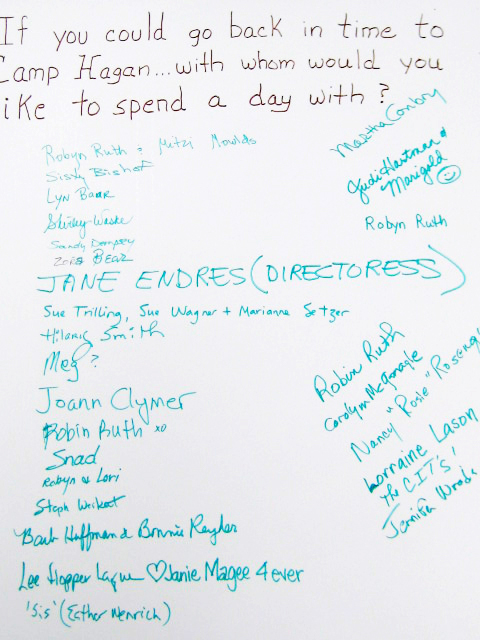 If you could go back in time to
Camp Hagan...with whom would you
like to spend a day with?
Robyn Ruth & Mitzi Moulds
Sissy Bishop
Lyn Baur
Shirley Waske
Sandy Dempsey
Zora BEAR
JANE ENDRES (DIRECTORESS)
Sue Trilling, Sue Wagner + Marianne Setzer
Hilary Smith
Meg?
Joann Clymer
Robin Ruth xo
Snad
Robyn & Lori
Steph Weikert
Barb Huffman & Bonnie Keyler
Lee Hopper ♡ Janie Magee 4 ever
'Sis' (Esther Henrich)
Martha Conboy
Judi Hartman &
Marigold ☺
Robyn Ruth
Robin Ruth
Carolyn McGonagle
Nancy "Rosie"
Lorraine Lason
The C.I.T.'s!
Jennifer Woods